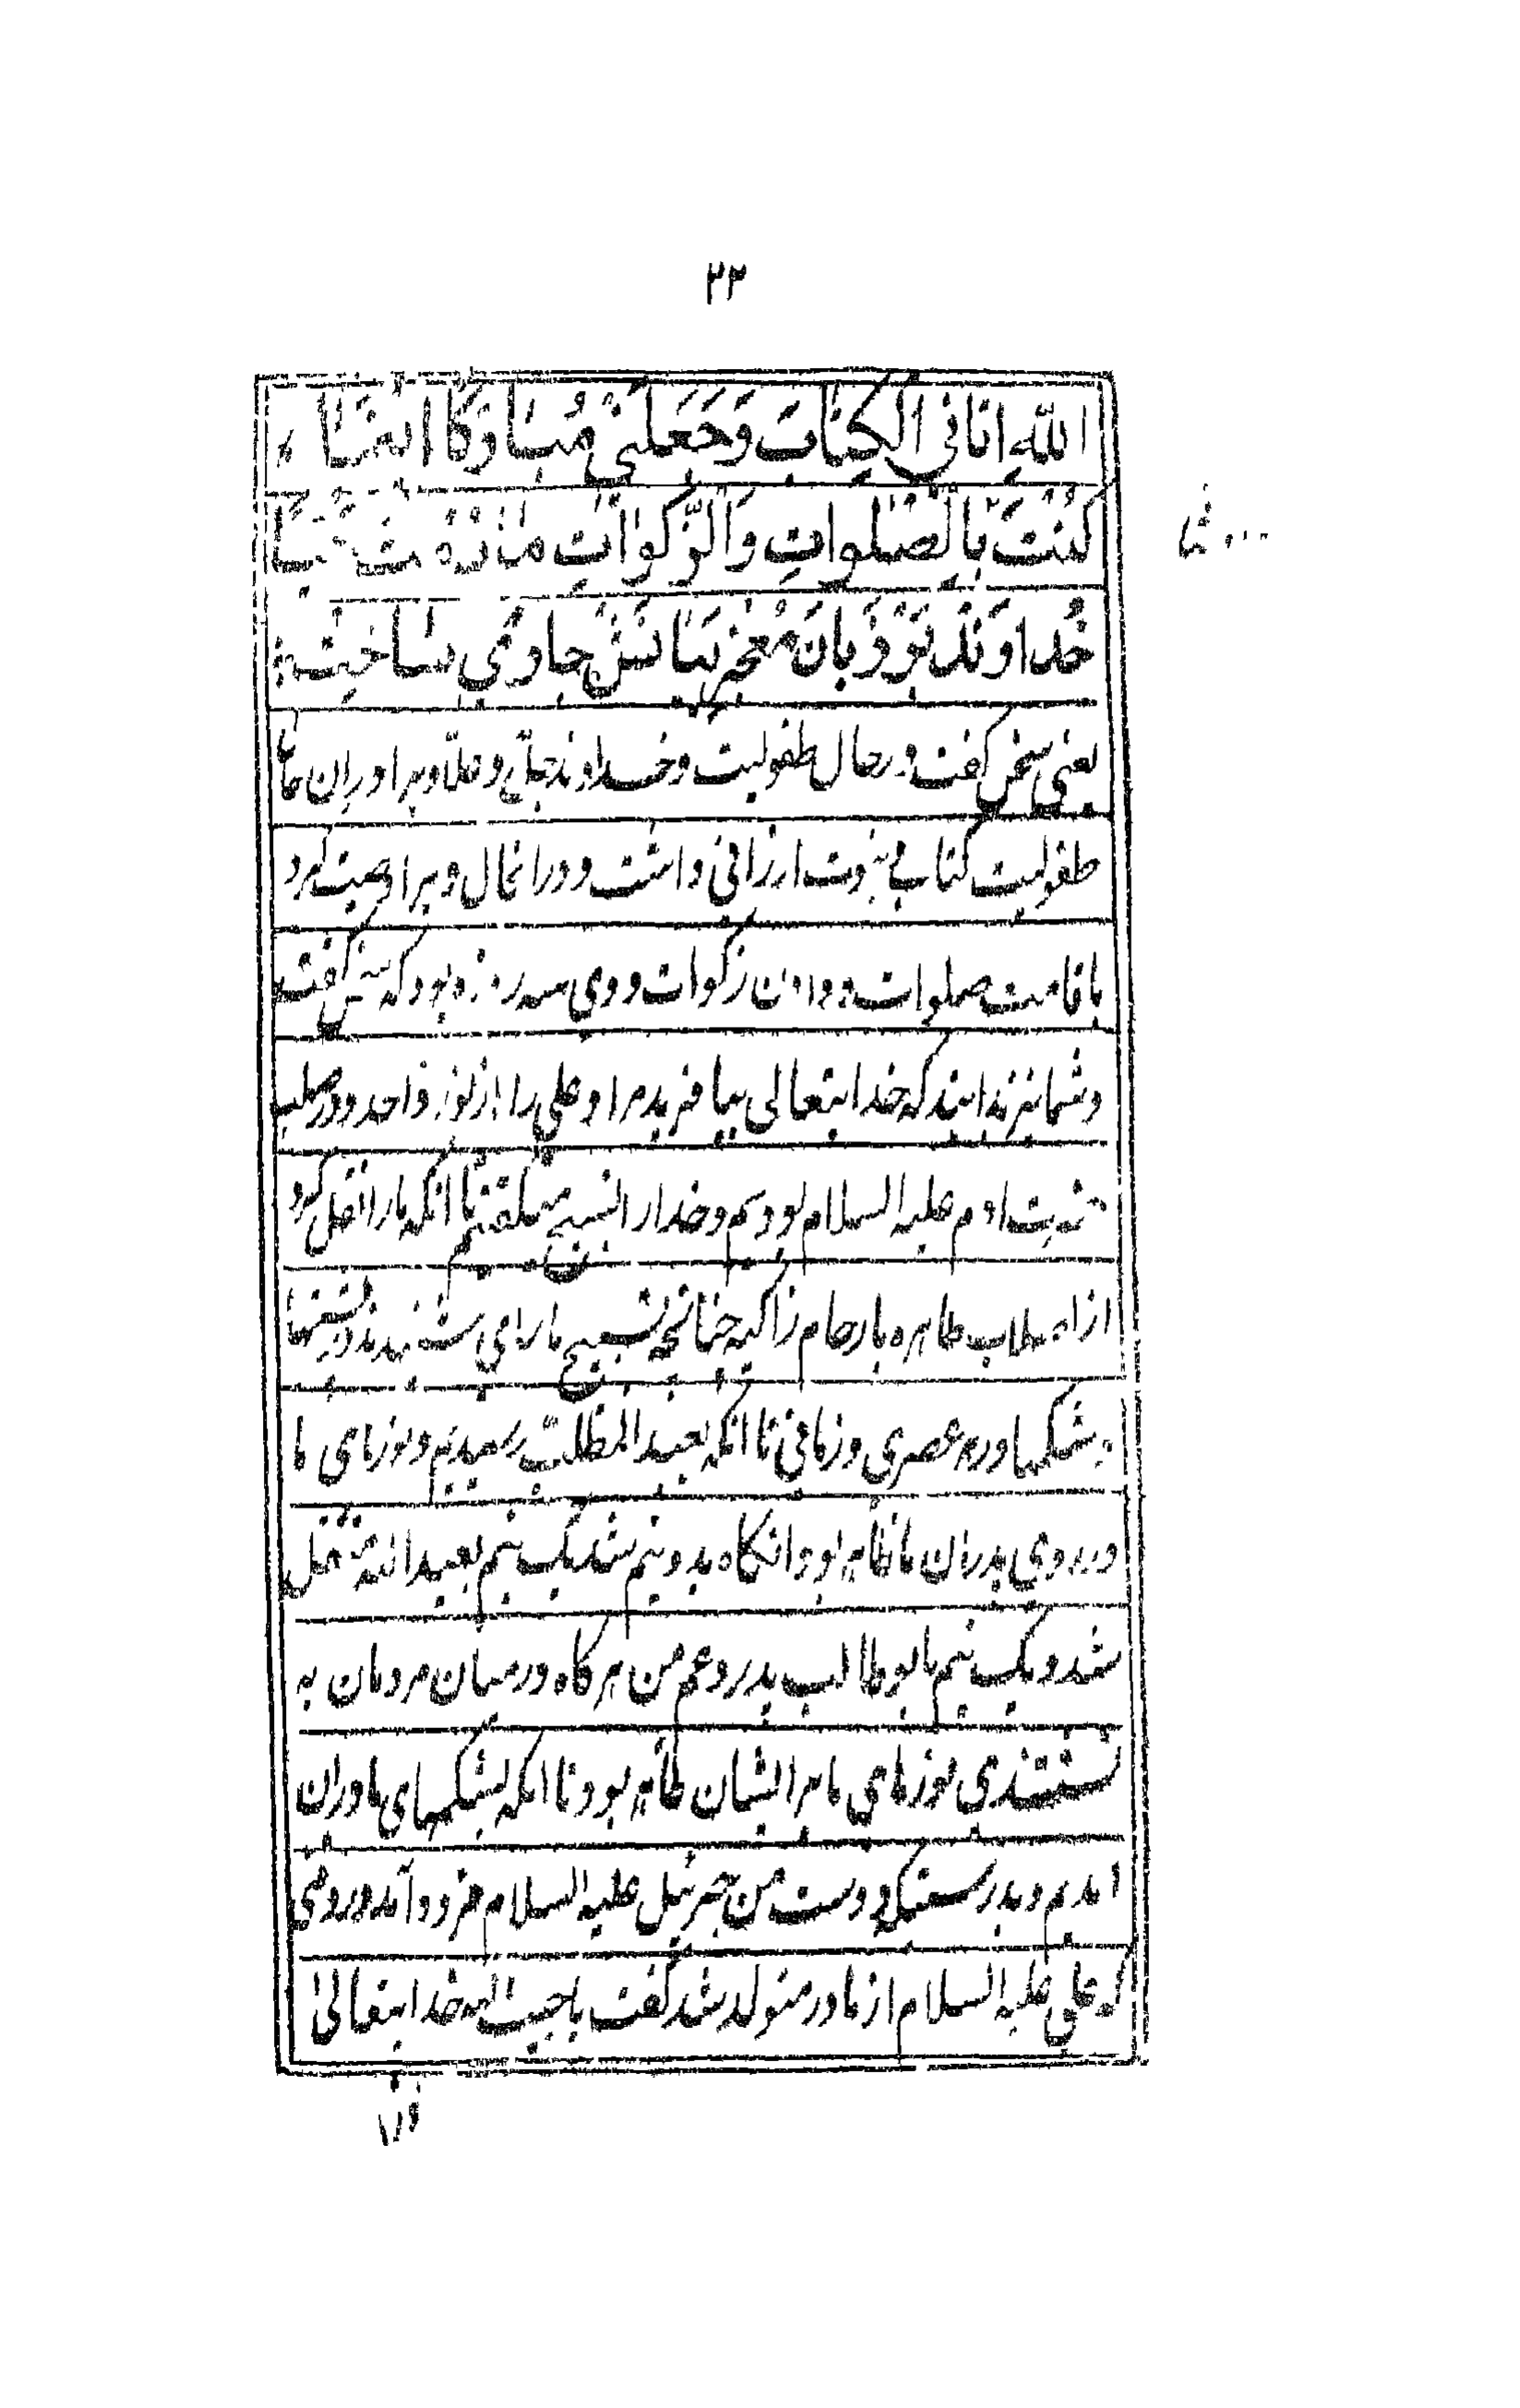 ۲۳
اللهِ اتانی الکِتابَ وَجَعَلَنی مُبارَکًا
کُنتَ بِالصَّلَواتِ وَالزَّکواتِ مادُمتُ
خُداوَند بَر زَبانَ مُعْجِز بَیانَش جاری ساخت
یعنی سخن کفت درحال طفولیت و خداوند جل وعلا ویرا دران
طفولیت کتاب نبوت ارزانی داشت و درانحال ویرا وصیت کرد
باقامت صلوات و دادن زکوات و وی سه روزه بود که سخن کفت
وشما نیز ندانیدکه خدایتعالی بیافرید مرا و علی را از نور واحد و در صلب
ادم علیه السلام بودیم و خدارا تسبیح میکفتیم تا انکه مارا نقل کرد
از اصلاب طاهره بارحام زاکیه چنانچه تسبیح مارا می شنیدند در پشتها
وشکمها درهر عصری وزمانی تا انکه بعبد المطلب رسیدیم و نورهای ما
در روی پدران ما ظاهر بود وانکاه بدو نیم شد یک نیم بعبد الله نقل
شد و یک نیم بابو طالب پدر وعم من هرکاه درمیان مردمان به
نشستندی نورهای ما برایشان ظاهر بود تا انکه بشکمهای مادران
امدیم و بدرستیکه دوست من جبرئیل علیه السلام فرود آمد در روزی
که علی علیه السلام از مادر متولد شد کفت یا حبیب الله خدایتعالی
ورا